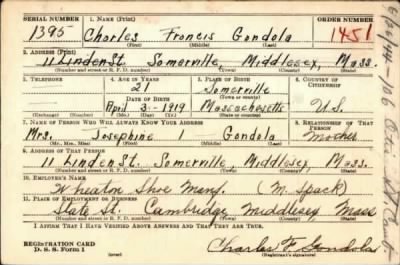 SERIAL NUMBER 1. NAME (Print) ORDER NUMBER
1395 Charles Francis Gondola 1451
(First) (Middle) (Last)
2. ADDRESS (Print)
11 Linden St. Somerville, Middlesex, Mass.
(Number and street or R. F. D. number) (Town) (County) (State)
3. TELEPHONE 4. AGE IN YEARS 5. PLACE OF BIRTH 6. COUNTRY OF CITIZENSHIP
21 Somerville
DATE OF BIRTH (Town or county)
April 3 - 1919 Massachusetts U.S.
(Exchange) (No.) (Mo.) (Day) (Yr.) (State or country)
7. NAME OF PERSON WHO WILL ALWAYS KNOW YOUR ADDRESS 8. RELATIONSHIP OF THAT PERSON
Mrs. Josephine Gondola Mother
(Mr., Mrs., Miss) (First) (Middle) (Last)
9. ADDRESS OF THAT PERSON
11 Linden St. Somerville, Middlesex, Mass.
(Number and street or R. F. D. number) (Town) (County) (State)
10. EMPLOYER'S NAME
Wheaton Shoe Manf. (M. Spack)
11. PLACE OF EMPLOYMENT OR BUSINESS
State St. Cambridge Middlesex Mass
(Number and street or R. F. D. number) (Town) (County) (State)
I AFFIRM THAT I HAVE VERIFIED ABOVE ANSWERS AND THAT THEY ARE TRUE.
REGISTRATION CARD
D. S. S. Form 1 (over) Charles F Gondola
(Registrant's signature)